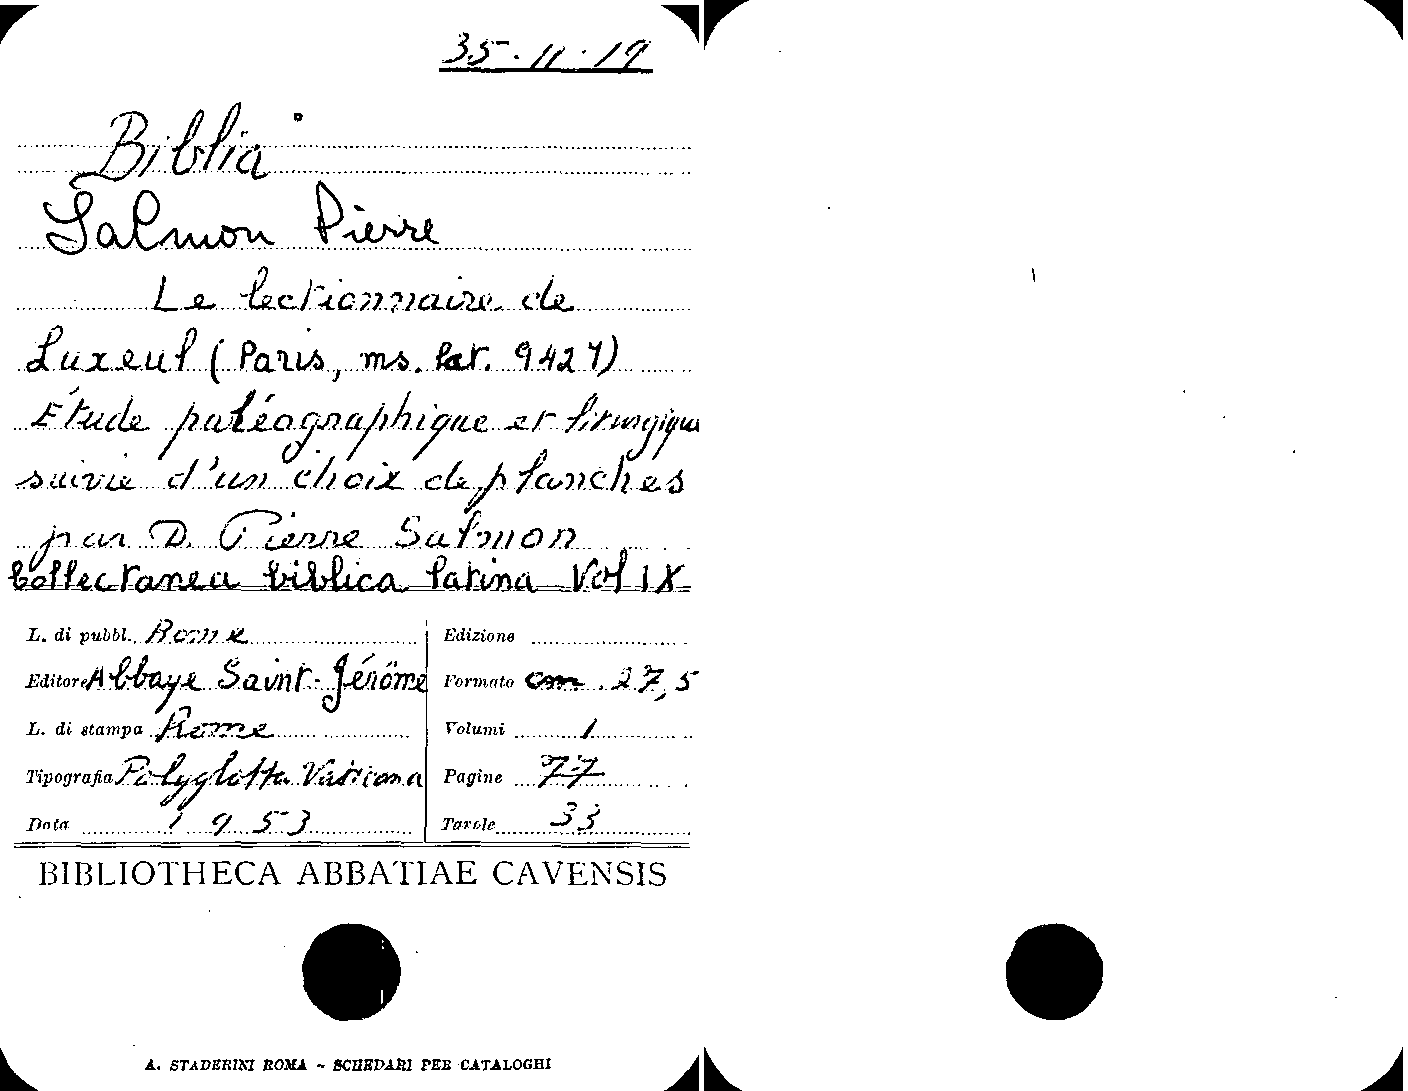 35-11-19
Biblia
Salmon Pierre
Le lectionnaire de
Luxeul (Paris, ms. lat. 9427)
Étude paléographique et liturgique
suivie d'un choix de planches
par D. Pierre Salmon
Collectanea biblica latina Vol IX
L. di pubbl. Rome
Edizione
Editore Abbaye Saint-Jérôme
Formato cm. 27,5
L. di stampa Rome
Volumi 1
Tipografia Polyglotta Vaticana
Pagine 77
Data 1953
Tavole 33
BIBLIOTHECA ABBATIAE CAVENSIS
A. STADERINI ROMA - SCHEDARI PER CATALOGHI